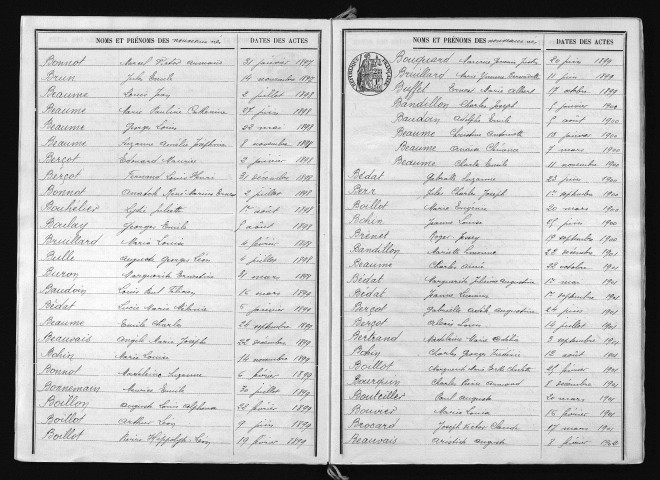 NOMS ET PRÉNOMS DES nouveaux nés DATES DES ACTES
Bonnot Marcel Victor Armand 21 janvier 1897
Brun Jules Emile 14 novembre 1897
Beaume Louis Jean 2 juillet 1898
Beaume Marie Pauline Catherine 1898
Beaume Georges Louis 22 mai 1898
Beaume Suzanne Amélie Joséphine 8 novembre 1898
Berçot Edouard Maurice 2 janvier 1898
Berçot Fernand Louis Henri 21 décembre 1898
Bonnot Anatole René Marius 2 juillet 1898
Bouhelier Lydie Juliette 1er août 1898
Boulay Georges Emile août 1898
Bruillard Marie Louise 4 février 1898
Bulle Auguste Georges Léon 4 juillet 1898
Buron Marguerite Ernestine 31 mars 1899
Baudoin Louis Paul 15 mars 1899
Bédat Lucie Marie Mélanie 5 janvier 1899
Beaume Emile Charles 24 septembre 1899
Beauvais Angèle Marie Josèphe 22 novembre 1899
Bohin Marie Louise 14 novembre 1899
Bonnot Madeleine Suzanne 6 février 1899
Bonnemain Maurice Emile 20 juillet 1899
Boillon Auguste Louis Alphonse 24 février 1899
Boillot Arthur Léon 9 juin 1899
Boillot Pierre Hippolyte Léon 19 février 1899
NOMS ET PRÉNOMS DES nouveaux nés DATES DES ACTES
RÉPUBLIQUE FRANÇAISE
Bouquard Marcus 20 juin 1899
Bruillard Marie Jeanne 11 juin 1899
Buffet Edmond Marie Albert 17 octobre 1899
Bandillon Charles Joseph 8 janvier 1900
Baudoin Adolphe Emile 8 août 1900
Beaume Antoinette 18 janvier 1900
Beaume 7 mars 1900
Beaume Charles Emile 11 novembre 1900
Bédat Gabrielle Suzanne 23 juin 1900
Berr Jules Charles Joseph 1er septembre 1900
Boillot Marie Eugénie 20 mars 1900
Bohin Jeanne Louise 25 juin 1900
Brenet Roger 19 septembre 1900
Bandillon Mariette 22 décembre 1901
Beaume Charles Aimé 22 octobre 1901
Bédat Marguerite Juliette Augustine 1er mai 1901
Bédat Jeanne 1er septembre 1901
Berçot Gabrielle Augustine 24 juin 1901
Berçot Alexis Louis 14 juillet 1901
Bertrand Madeleine Marie 3 septembre 1901
Bohin Charles Georges Frédéric 12 août 1901
Boillot Marguerite Marie Juliette 25 février 1901
Bourgun Charles Pierre Armand 8 décembre 1901
Bouteiller Paul Auguste 20 mars 1901
Bouvier Marie Louise 15 février 1901
Brocard Joseph Victor Claude 17 mars 1901
Beauvais Aristide Auguste 8 février 1902